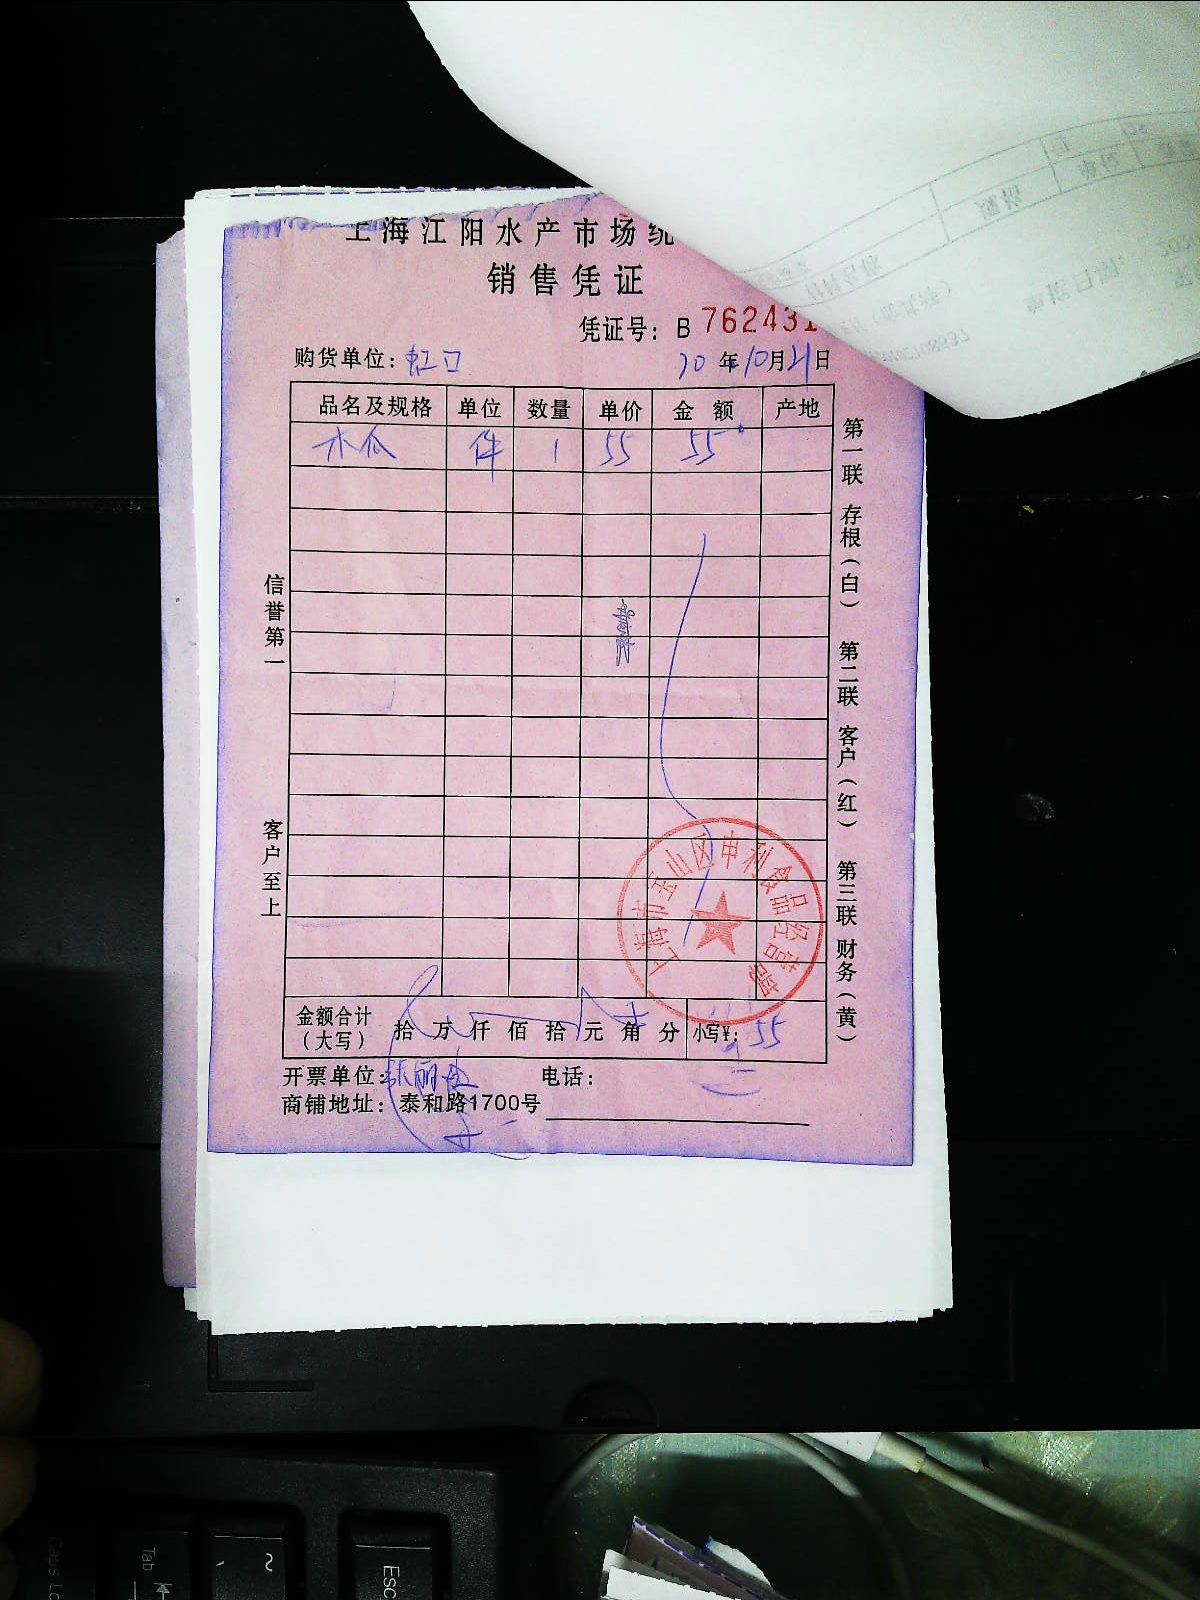 上海江阳水产市场统
销售凭证
凭证号：B 762431
购货单位：虹口 20年10月21日
品名及规格 单位 数量 单价 金 额 产地
木瓜 件 1 55 55
信誉第一
客户至上
第一联 存根（白） 第二联 客户（红） 第三联 财务（黄）
上海市宝山区申利食品经营部
金额合计（大写） 拾 万 仟 佰 拾 元 角 分 小写¥: 55
开票单位： 电话：
商铺地址：泰和路1700号
Tab
Caps Lo
~
Esc